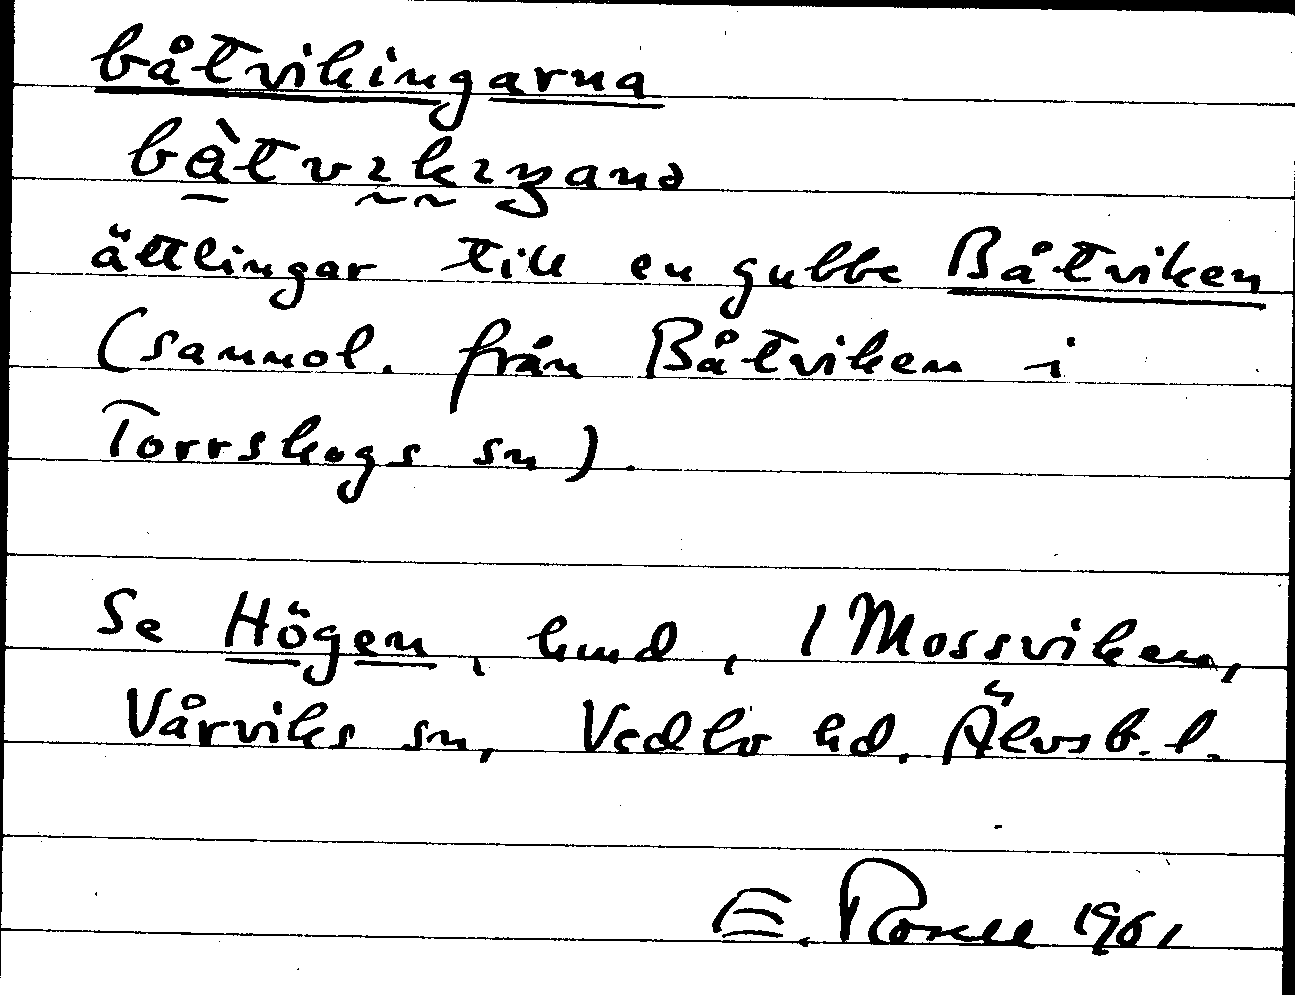 båtvikingarna
ättlingar till en gubbe Båtviken
(sannol. från Båtviken i
Torrskogs sn).
Se Högen, hmd, 1 Mossviken,
Vårviks sn, Vedbo hd, Älvsb. l.
E. Rosell 1961